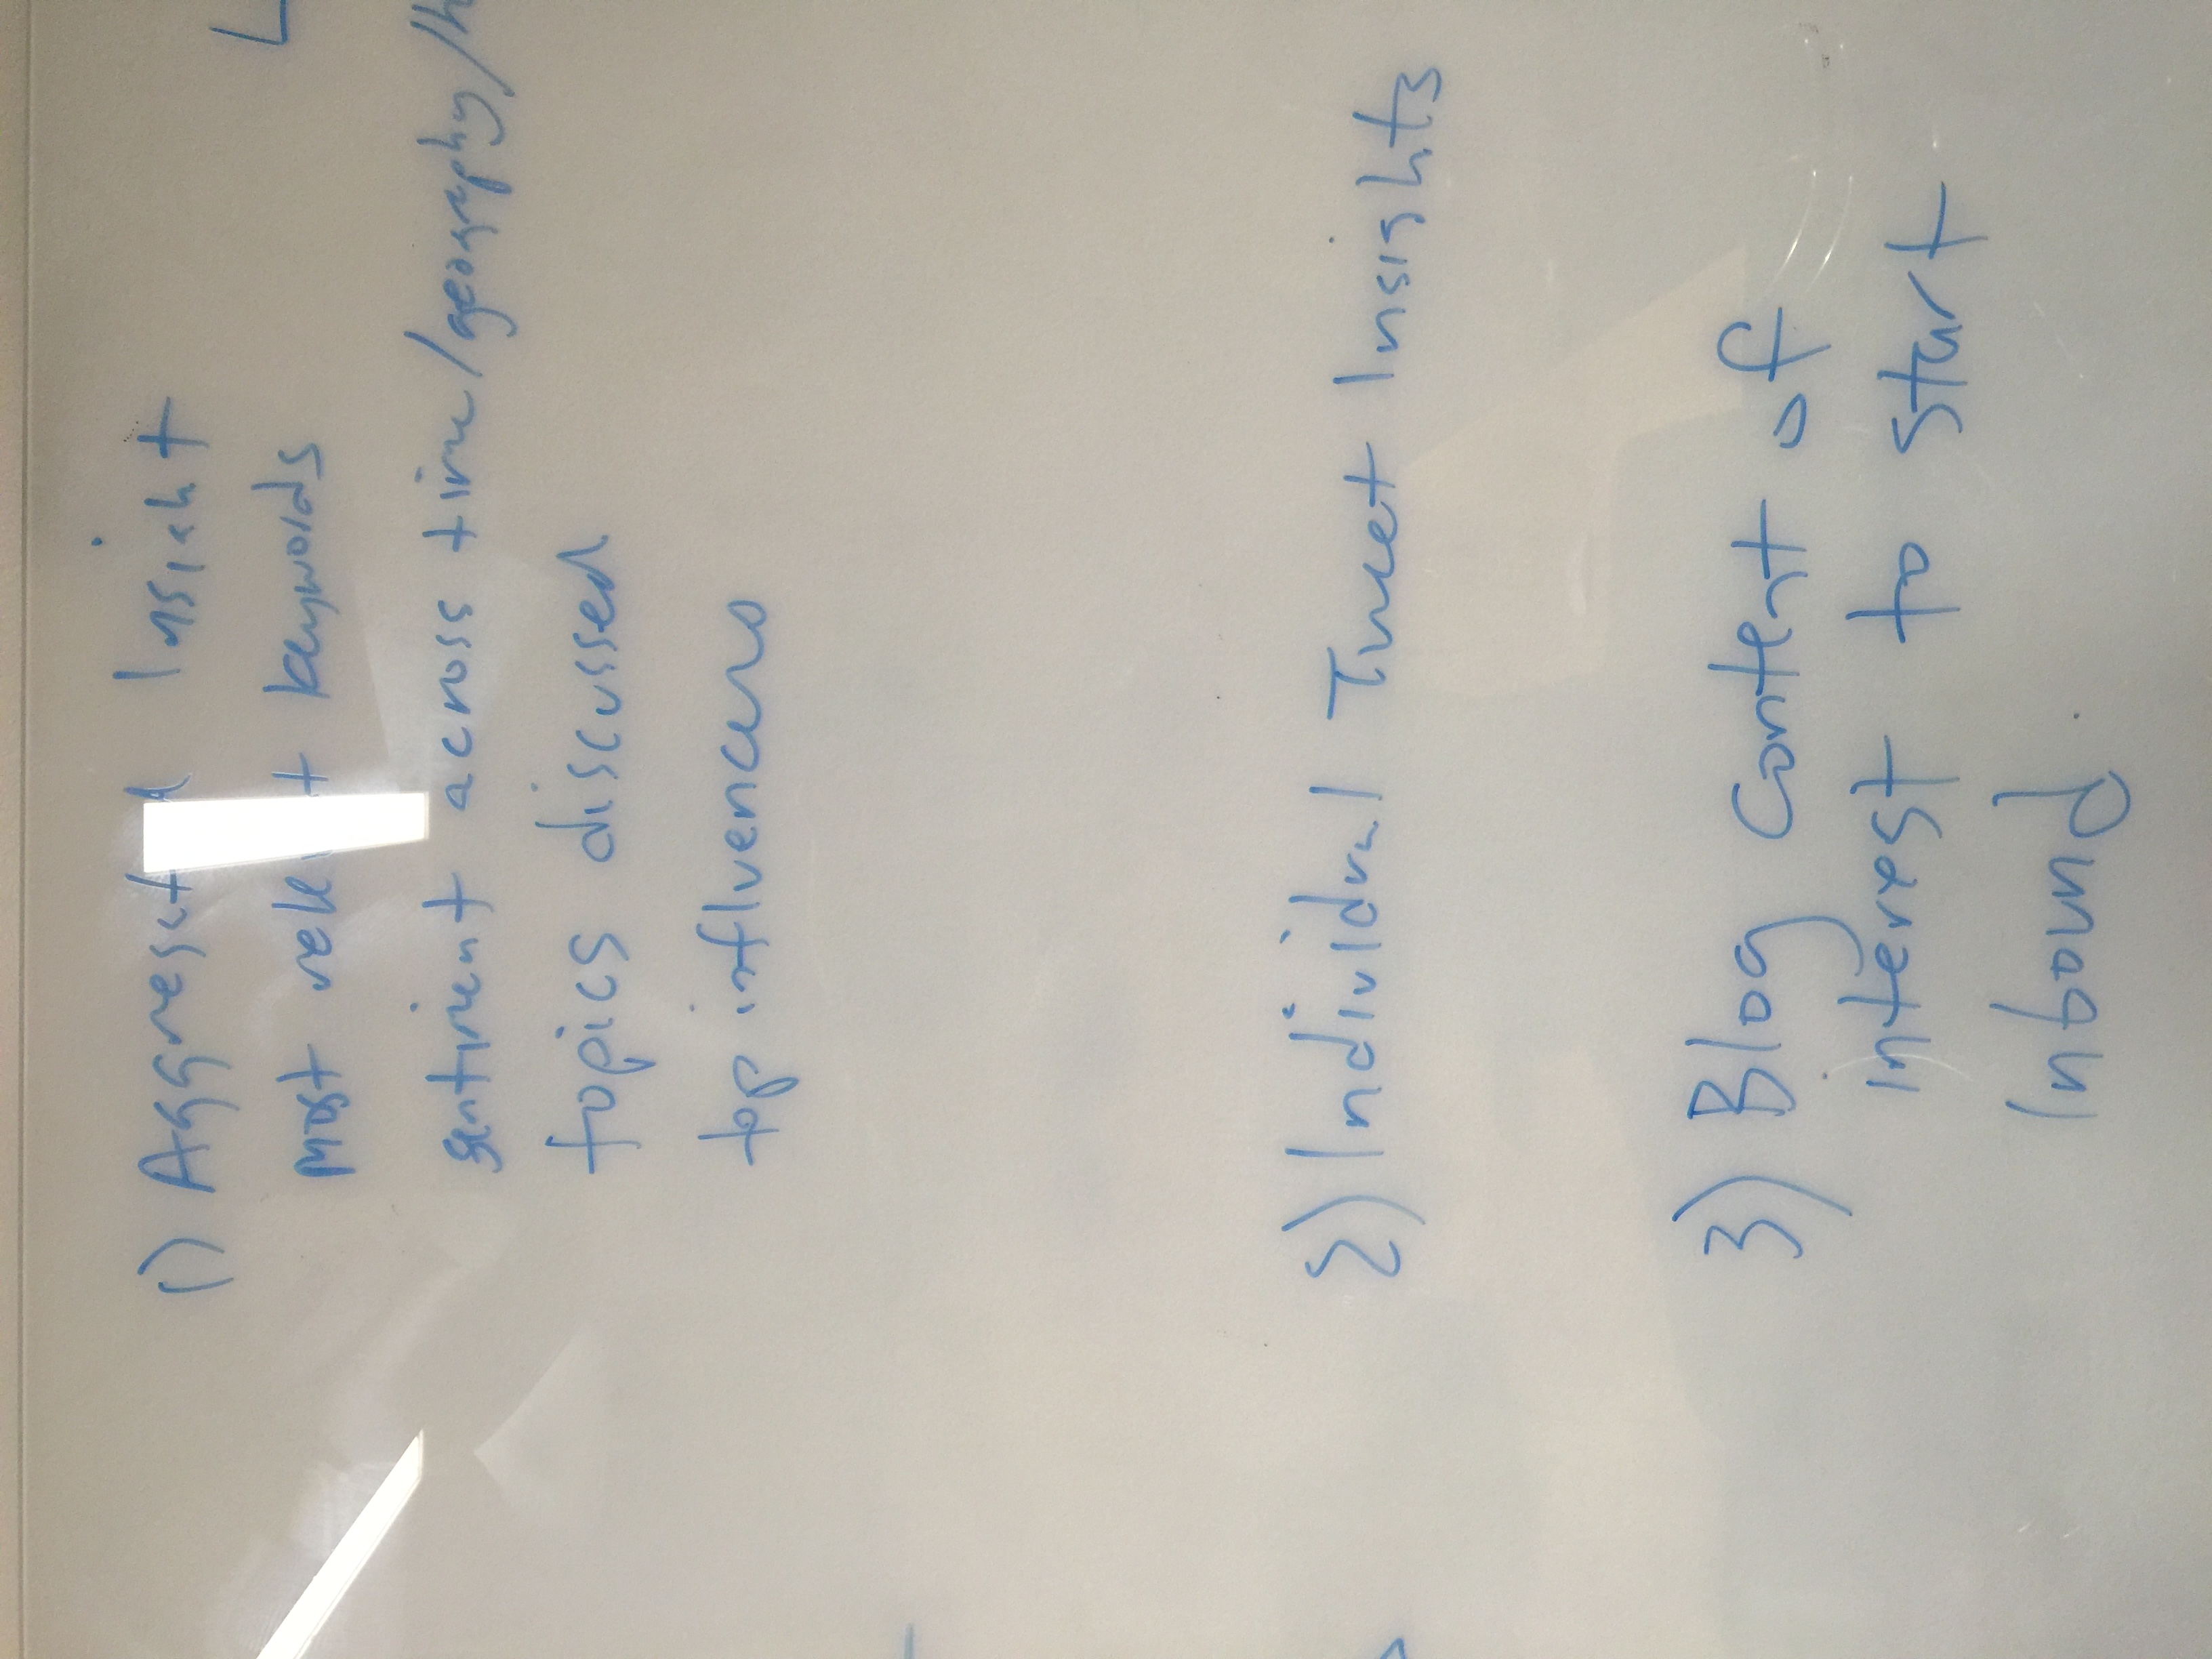 1) Aggregated Insight
most relevant keywords
sentiment across time/geography/
topics discussed
top influencers
2) Individual Tweet Insights
3) Blog content of
interest to start
Inbound